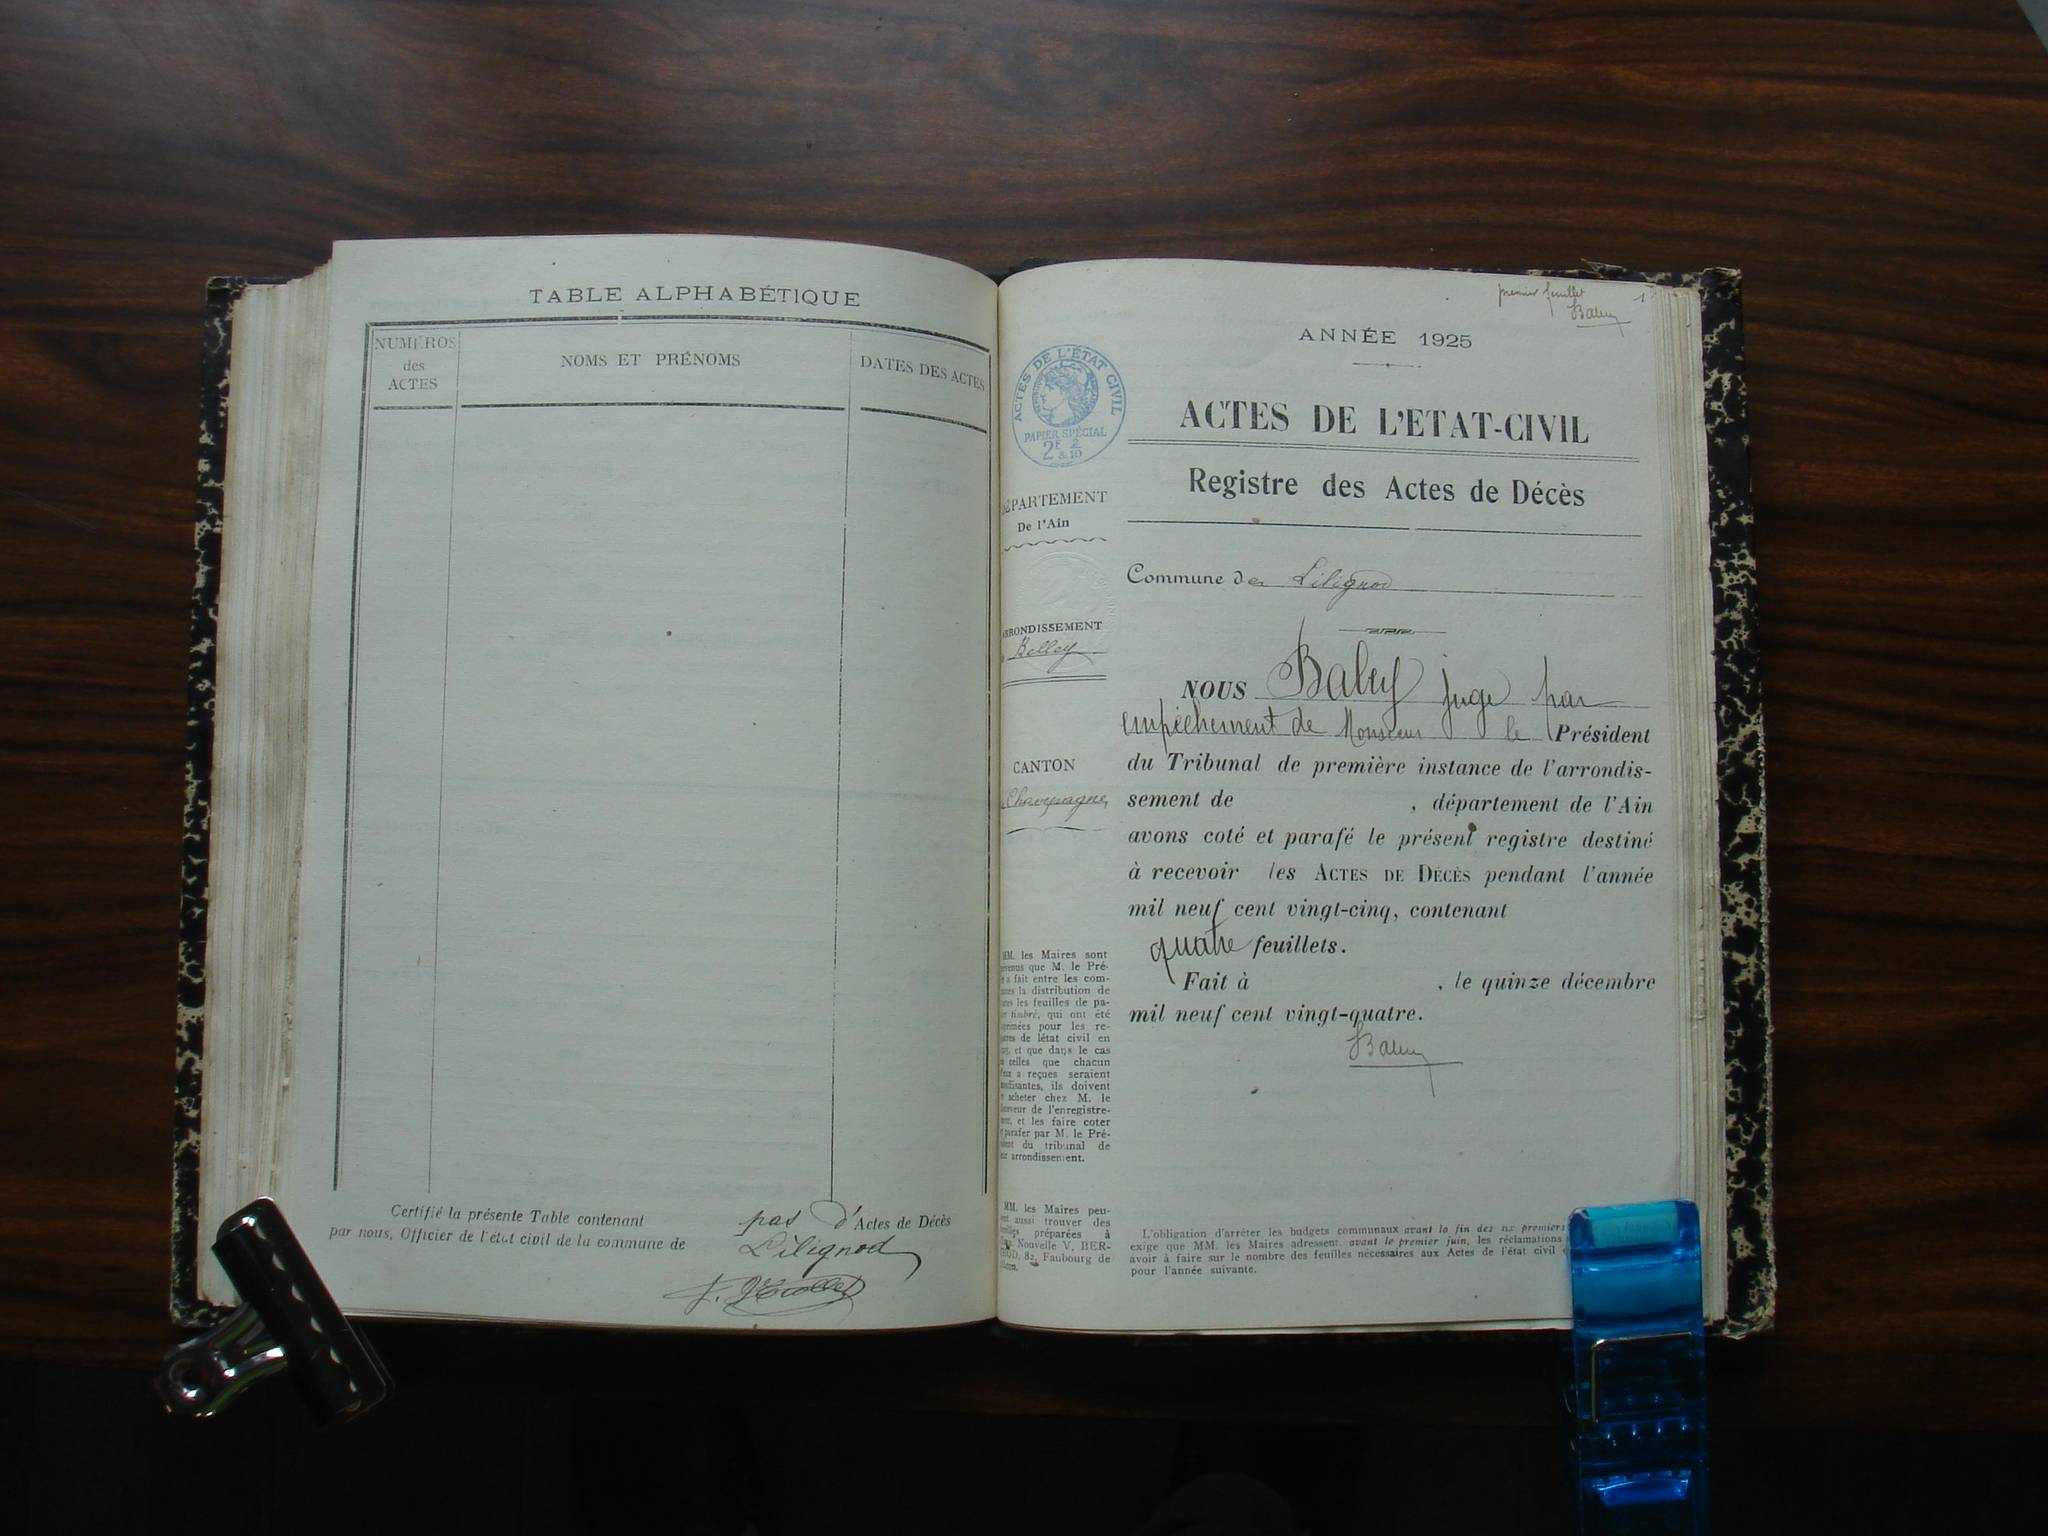 TABLE ALPHABÉTIQUE
NUMÉROS
des
ACTES
NOMS ET PRÉNOMS
DATES DES ACTES
Certifié la présente Table contenant pas d'Actes de Décès
par nous, Officier de l'état civil de la commune de Lilignod
premier feuillet
1
ANNÉE 1925
ACTES DE L'ÉTAT CIVIL
PAPIER SPÉCIAL
2F & 2/10
ACTES DE L'ETAT-CIVIL
Registre des Actes de Décès
DÉPARTEMENT
De l'Ain
Commune de Lilignod
ARRONDISSEMENT
Belley
CANTON
Champagne
NOUS juge par
empêchement de Monsieur le Président
du Tribunal de première instance de l'arrondis-
sement de , département de l'Ain
avons coté et parafé le présent registre destiné
à recevoir les ACTES DE DÉCÈS pendant l'année
mil neuf cent vingt-cinq, contenant
quatre feuillets.
Fait à , le quinze décembre
mil neuf cent vingt-quatre.
MM. les Maires sont
que M. le Pré-
a fait entre les com-
la distribution de
les feuilles de pa-
timbré, qui ont été
pour les re-
de létat civil en
et que dans le cas
telles que chacun
a reçues seraient
ils doivent
acheter chez M. le
de l'enregistre-
et les faire coter
parafer par M. le Pré-
du tribunal de
arrondissement.
MM. les Maires peu-
aussi trouver des
préparées à
Nouvelle V. BER-
82, Faubourg de
L'obligation d'arrêter les budgets communaux avant la fin des premiers
exige que MM. les Maires adressent, avant le premier juin, les réclamations
avoir à faire sur le nombre des feuilles nécessaires aux Actes de l'état civil
pour l'année suivante.